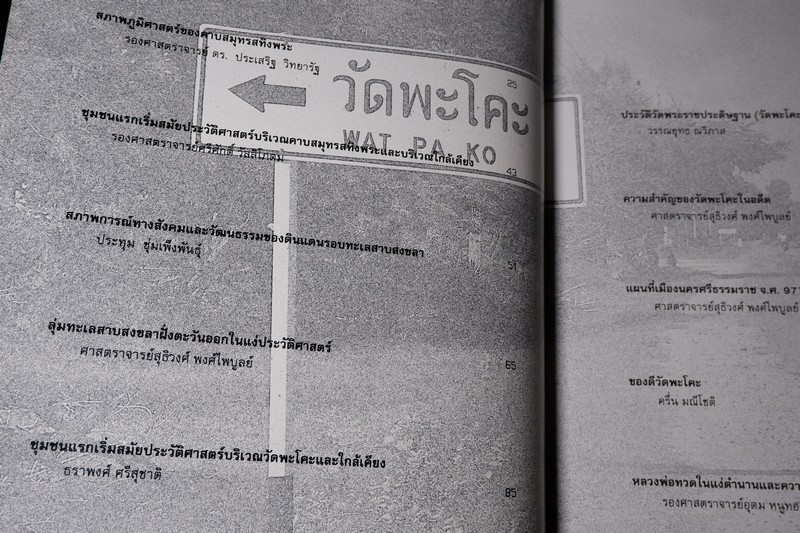 สภาพภูมิศาสตร์ของคาบสมุทรสทิงพระ
รองศาสตราจารย์ ดร. ประเสริฐ วิทยารัฐ
25
วัดพะโคะ
WAT PA KO
ชุมชนแรกเริ่มสมัยประวัติศาสตร์บริเวณคาบสมุทรสทิงพระและบริเวณใกล้เคียง
รองศาสตราจารย์ศรีศักดิ์ วัลลิโภดม
43
สภาพการณ์ทางสังคมและวัฒนธรรมของดินแดนรอบทะเลสาบสงขลา
ประทุม ชุ่มเพ็งพันธุ์
51
ลุ่มทะเลสาบสงขลาฝั่งตะวันออกในแง่ประวัติศาสตร์
ศาสตราจารย์สุธิวงศ์ พงศ์ไพบูลย์
65
ชุมชนแรกเริ่มสมัยประวัติศาสตร์บริเวณวัดพะโคะและใกล้เคียง
ธราพงศ์ ศรีสุชาติ
85
ประวัติวัดพระราชประดิษฐาน (วัดพะโคะ
วรรณยุทธ ณวิภาต
ความสำคัญของวัดพะโคะในอดีต
ศาสตราจารย์สุธิวงศ์ พงศ์ไพบูลย์
แผนที่เมืองนครศรีธรรมราช จ.ศ. 977
ศาสตราจารย์สุธิวงศ์ พงศ์ไพบูลย์
ของดีวัดพะโคะ
ครื่น มณีโชติ
หลวงพ่อทวดในแง่ตำนานและควา
รองศาสตราจารย์อุดม หนูทอง